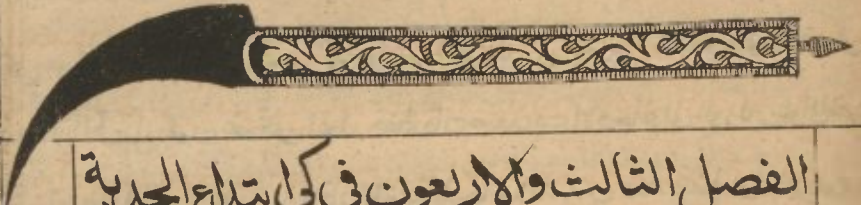 الفصل الثالث والاربعون في كى ابتداء الحدبة